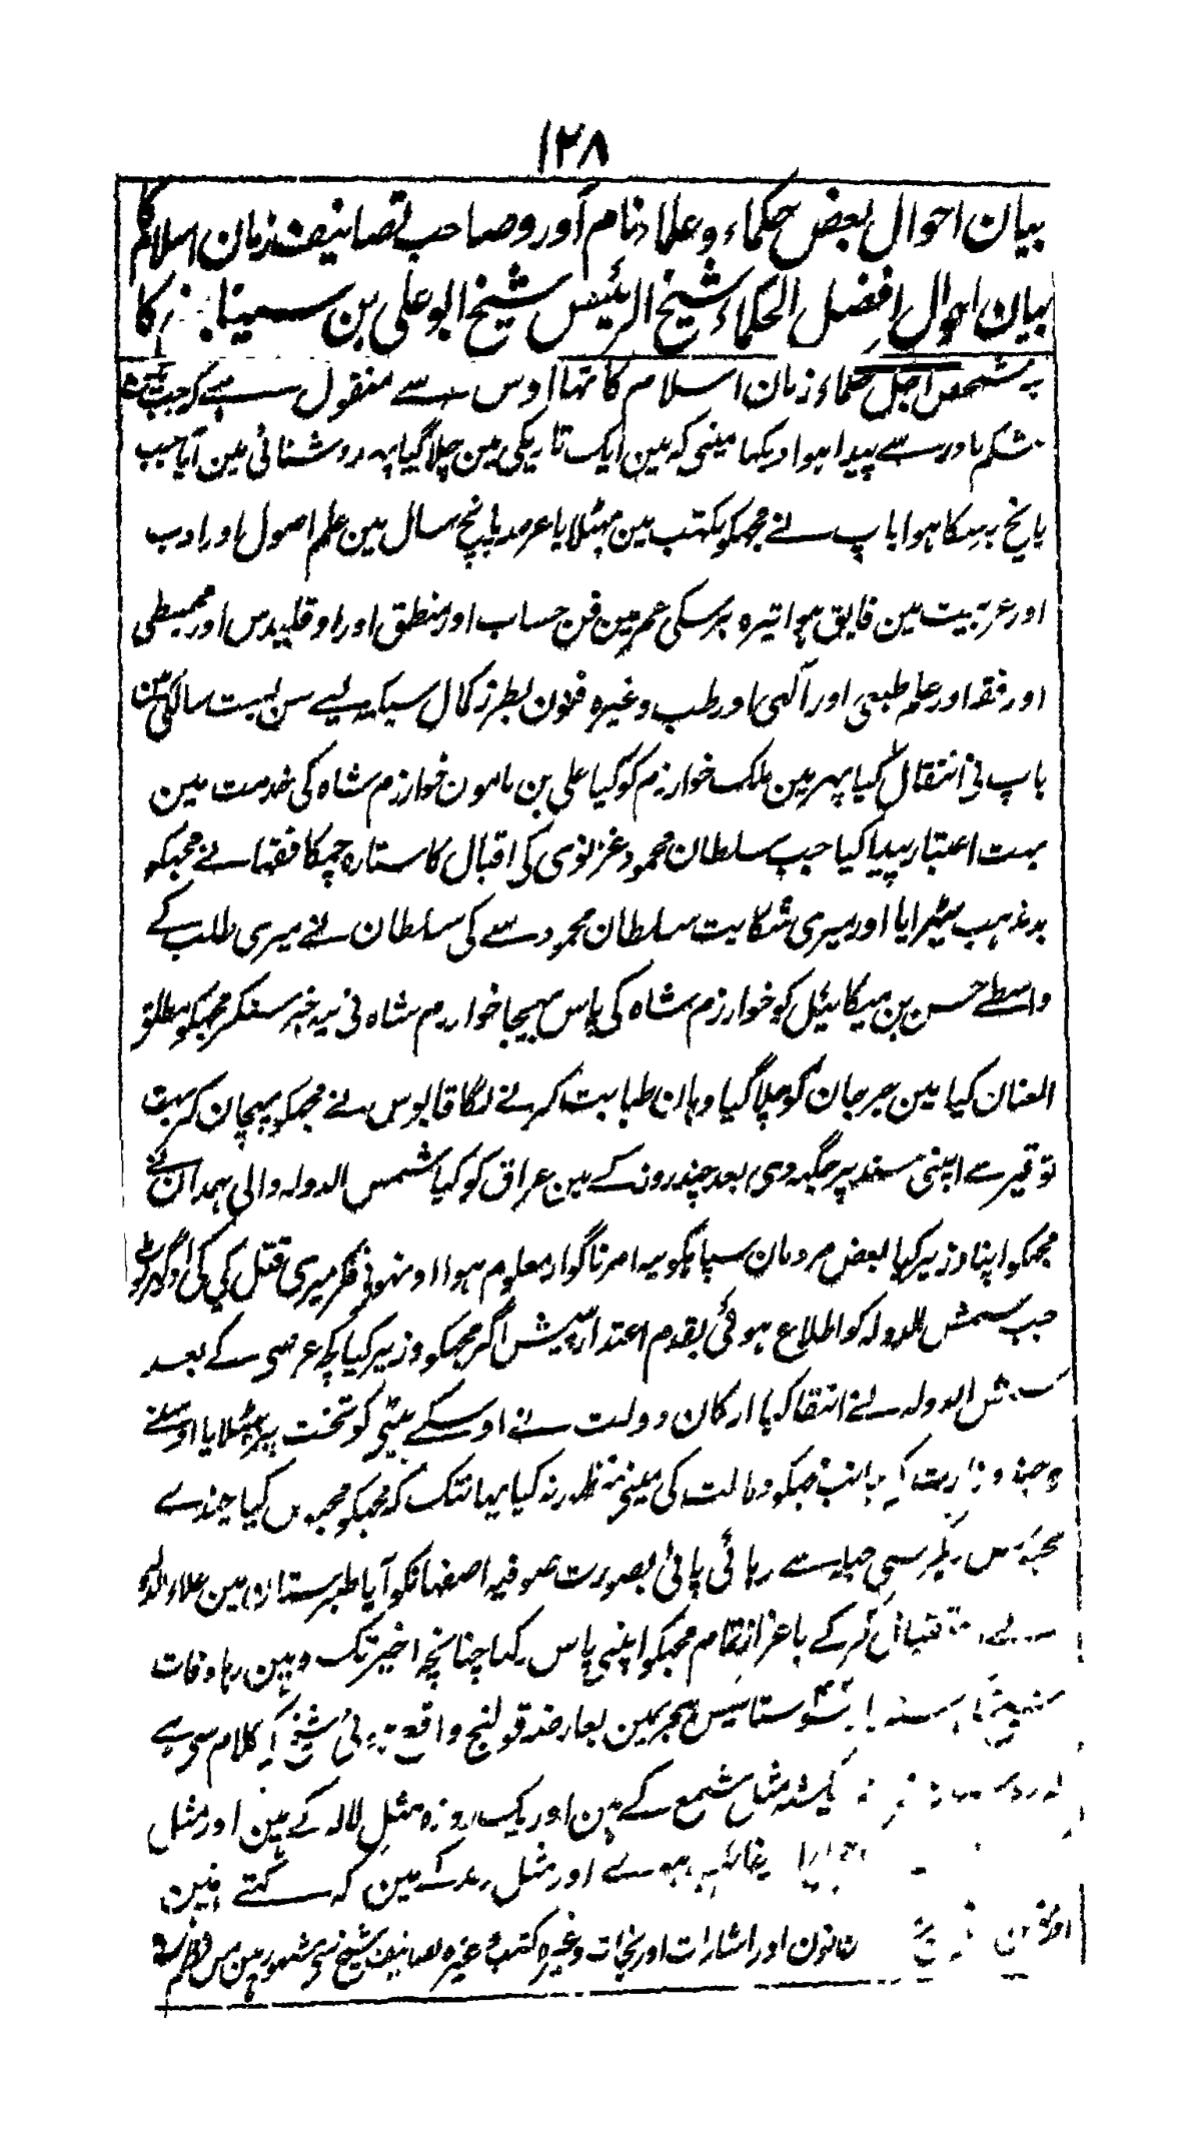 ۱۲۸
بیان احوال بعض حکماء و علماء نام آور و صاحب تصانیف زمان اسلام کا
بیان احوال افضل الحکماء شیخ الرئیس شیخ ابو علی بن سینا کا
یہ شخص اجل حکماء زمان اسلام کا تھا اوس سے منقول ہے کہ جب مین
شکم مادر سے پیدا ہوا دیکھا مینی کہ مین ایک تاریکی مین چلا گیا پہر روشنائی مین آیا جب
پانچ برسکا ہوا باپ نے مجھکو مکتب مین بٹھلایا عرصہ پانچ سال مین علم اصول اور ادب
اور عربیت مین فایق ہوا تیرہ برسکی عمر مین فن حساب اور منطق اور اوقلیدس اور مجسطی
اور فقہ اور علم طبعی اور آلہی اور طب وغیرہ فنون بطرز کمال سیکھ لیے سن بست سالگی مین
باپ نی انتقال کیا پہر مین ملک خوارزم کو گیا علی بن مامون خوارزم شاہ کی خدمت مین
بہت اعتبار پیدا کیا جب سلطان محمود غزنوی کی اقبال کا ستارہ چمکا فقہا نے مجھکو
بد مذہب ٹہرایا اور میری شکایت سلطان محمود سے کی سلطان نے میری طلب کے
واسطے حسن بن میکائیل کو خوارزم شاہ کی پاس بہیجا خوارزم شاہ نی یہ خبر سنکر مجھکو مطلق
العنان کیا مین جرجان کو چلا گیا وہان طبابت کرنے لگا قابوس نے مجھکو پہچان کر بہت
توقیر سے اپنی مسند پر جگہ دی بعد چند روز کے مین عراق کو گیا شمس الدولہ والی ہمدان نے
مجھکو اپنا وزیر کیا بعض مردمان سپاہکو یہ امر ناگوار معلوم ہوا اونہونی فکر میری قتل کی کی
جب شمس الدولہ کو اطلاع ہوئی بقدم اعتذار پیش آکر مجھکو وزیر کیا کچھ عرصی کے بعد
شمس الدولہ نے انتقال کیا ارکان دولت نے اوسکے بیٹی کو تخت پر بٹھلایا اوسنے
وزارت کی جانب مجھکو دلالت کی مینی منظور نہ کیا یہانتک کہ مجھکو محبوس کیا چندے
محبوس رہکر کسی حیلہ سے رہائی پائی بصورت صوفیہ اصفہانکو آیا طبرستان مین علاء الدولہ
نے استقبال کر کے باعزاز تمام مجھکو اپنی پاس رکہا چنانچہ اخیر تک وہین رہا وفات
شیخ کی سنہ چار سو ستائیس ہجریمین بعارضہ قولنج واقع ہوئی شیخ کے کلام سی ہے
مثل شمع کے ہین اور یک روزہ مثل لالہ کے ہین اور مثل
اور مثل کے ہین کہ کہتے ہین
قانون اور اشارات اور نجات وغیرہ کتب وغیرہ تصانیف شیخ سی مشہور ہین